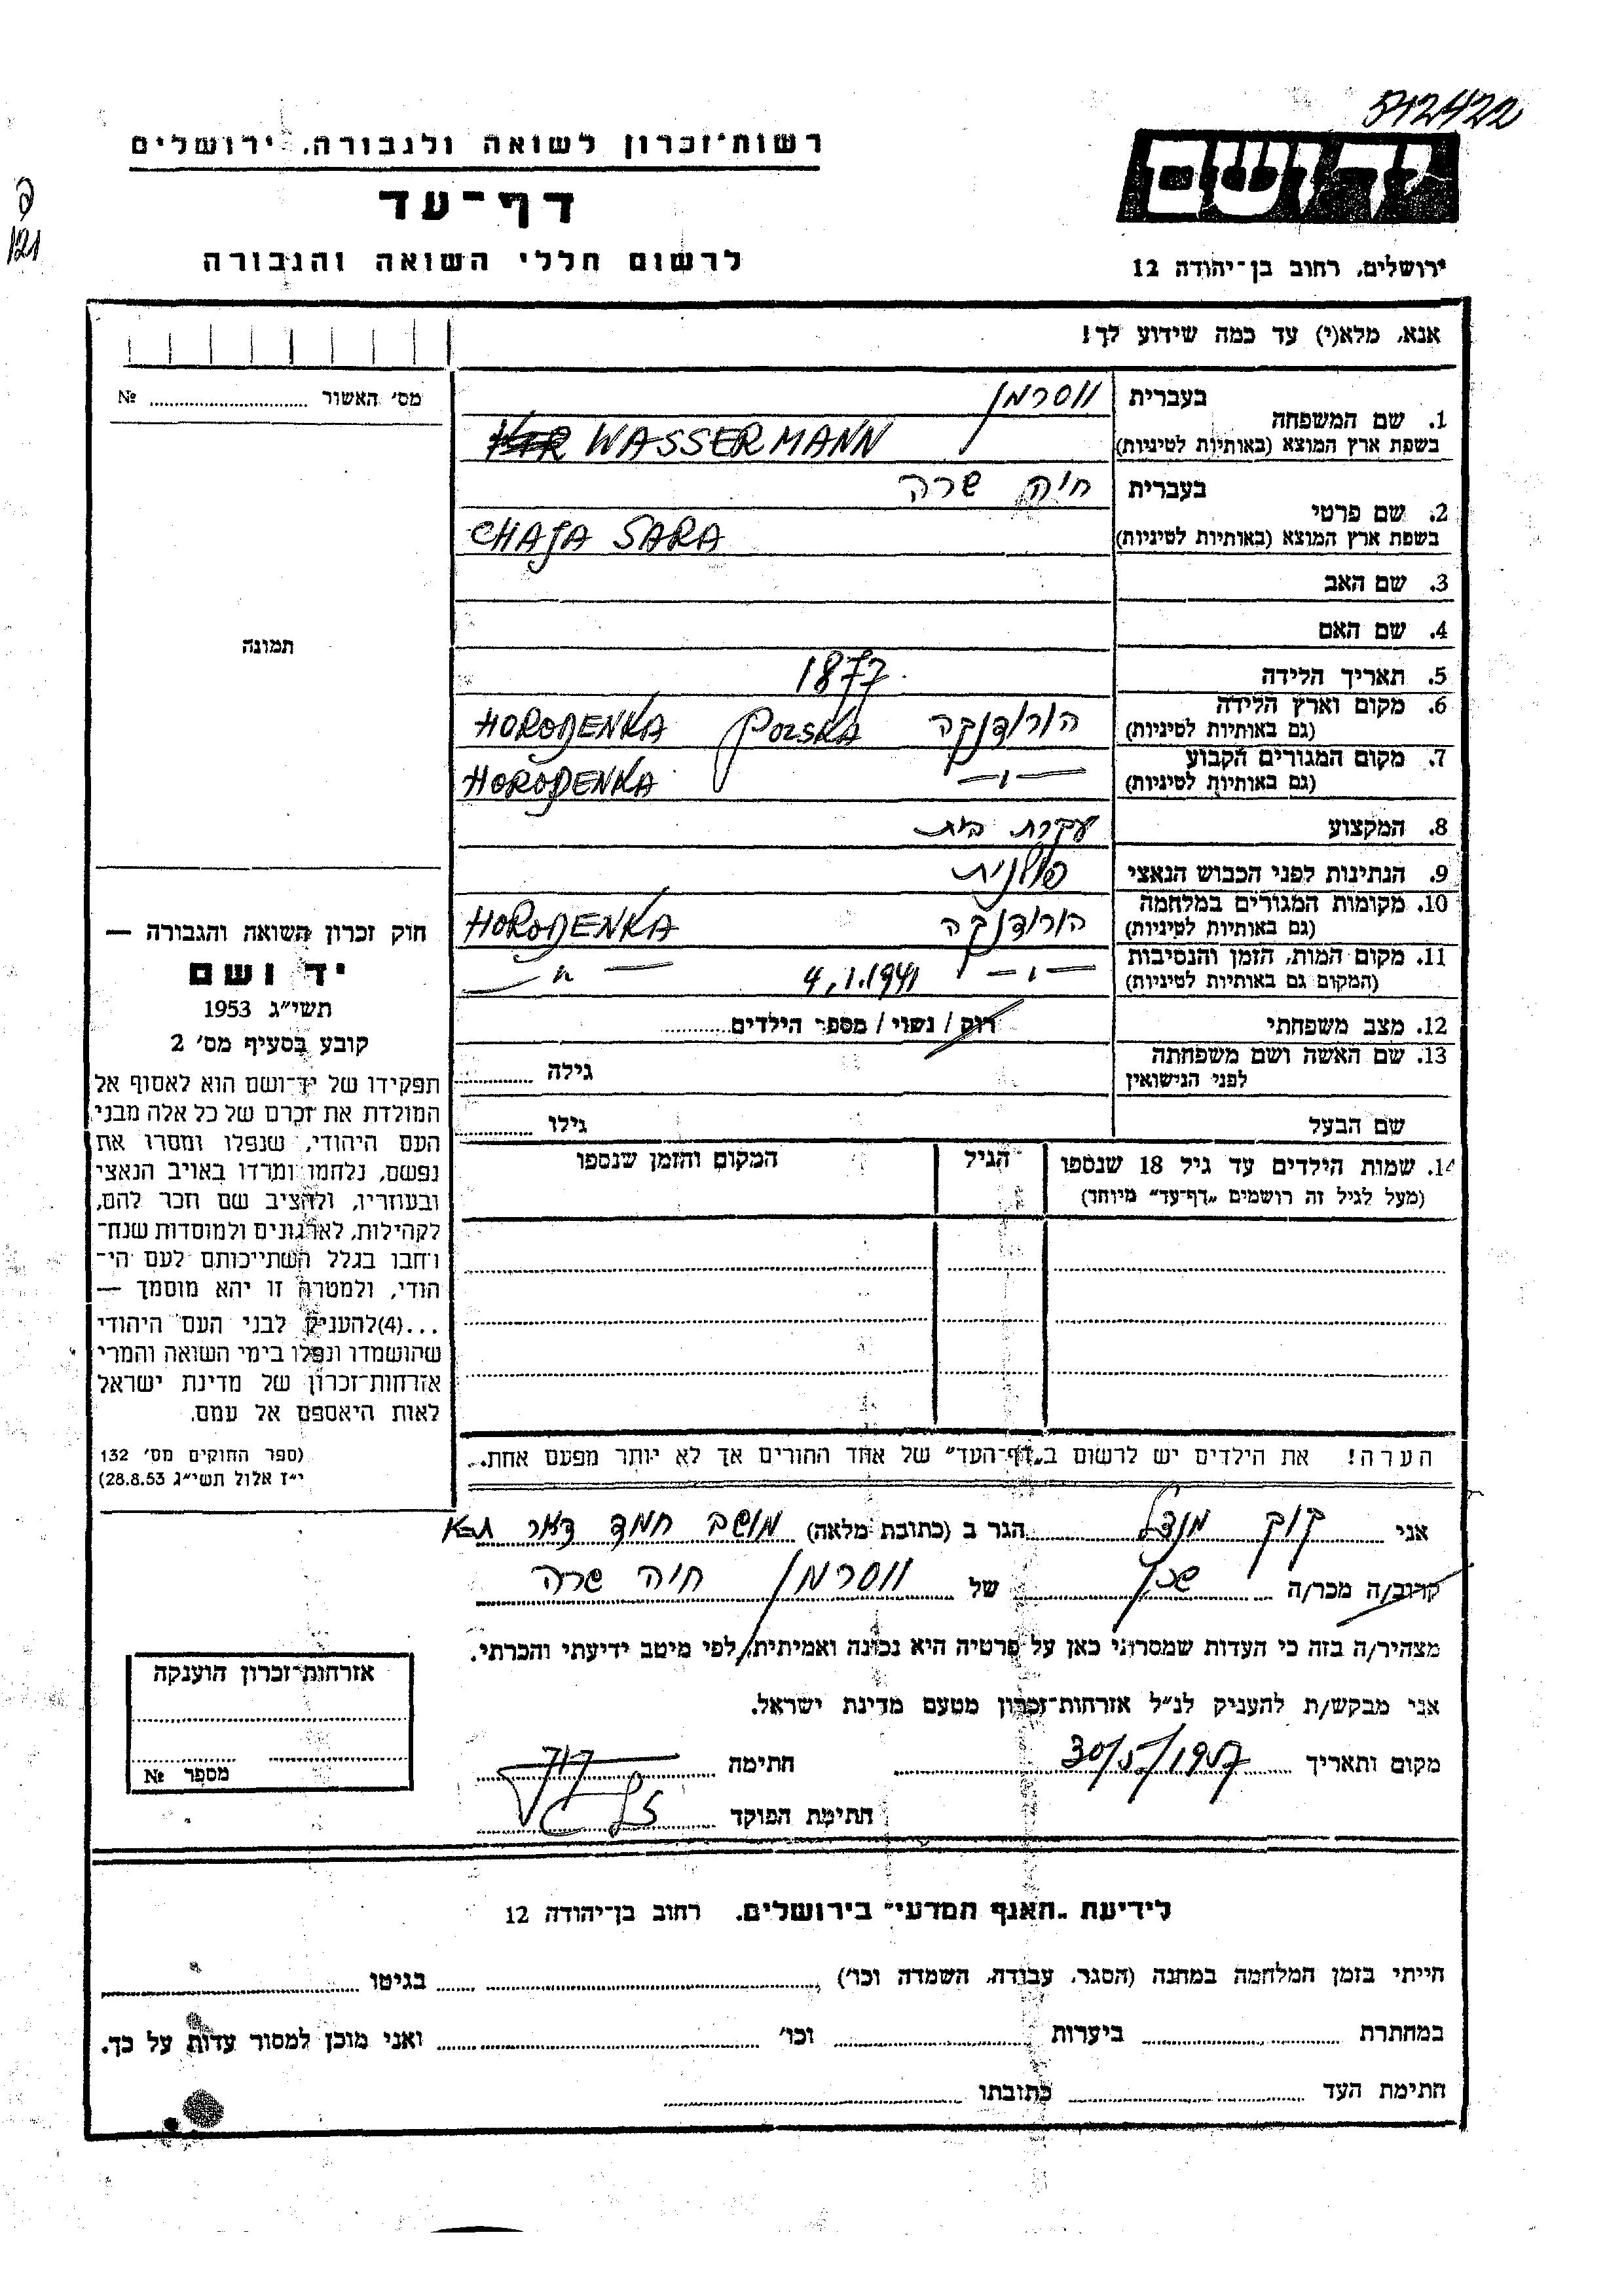 512422
יד ושם
ירושלים, רחוב בן־יהודה 12
רשות־זכרון לשואה ולגבורה, ירושלים
דף־עד
לרשום חללי השואה והגבורה
121
אנא, מלא(י) עד כמה שידוע לך!
1. שם המשפחה בעברית ווסרמן
בשפת ארץ המוצא (באותיות לטיניות) WASSERMANN
2. שם פרטי בעברית חיה שרה
בשפת ארץ המוצא (באותיות לטיניות) CHAJA SARA
3. שם האב
4. שם האם
5. תאריך הלידה 1877
6. מקום וארץ הלידה הורודנקה POLSKA HORODENKA
(גם באותיות לטיניות)
7. מקום המגורים הקבוע —״— HORODENKA
(גם באותיות לטיניות)
8. המקצוע עקרת בית
9. הנתינות לפני הכבוש הנאצי פולנית
10. מקומות המגורים במלחמה הורודנקה HORODENKA
(גם באותיות לטיניות)
11. מקום המות, הזמן והנסיבות —״— 4.1.1941 —״—
(המקום גם באותיות לטיניות)
12. מצב משפחתי רוק / נשוי / מספר הילדים
13. שם האשה ושם משפחתה
לפני הנישואין גילה
שם הבעל גילו
14. שמות הילדים עד גיל 18 שנספו הגיל המקום והזמן שנספו
(מעל לגיל זה רושמים „דף־עד״ מיוחד)
הערה! את הילדים יש לרשום ב„דף־העד״ של אחד ההורים אך לא יותר מפעם אחת.
מס׳ האשור №
תמונה
חוק זכרון השואה והגבורה —
יד ושם
תשי״ג 1953
קובע בסעיף מס׳ 2
תפקידו של יד־ושם הוא לאסוף אל
המולדת את זכרם של כל אלה מבני
העם היהודי, שנפלו ומסרו את
נפשם, נלחמו ומרדו באויב הנאצי
ובעוזריו, ולהציב שם וזכר להם,
לקהילות, לארגונים ולמוסדות שנח־
רחבו בגלל השתייכותם לעם הי־
הודי, ולמטרה זו יהא מוסמך —
...(4)להעניק לבני העם היהודי
שהושמדו ונפלו בימי השואה והמרי
אזרחות־זכרון של מדינת ישראל
לאות היאספם אל עמם.
(ספר החוקים מס׳ 132
י״ז אלול תשי״ג 28.8.53)
אני קוק מנדל הגר ב (כתובת מלאה) מושב חמד
קרוב/ה מכר/ה שכן של ווסרמן חיה שרה
מצהיר/ה בזה כי העדות שמסרתי כאן על פרטיה היא נכונה ואמיתית, לפי מיטב ידיעתי והכרתי.
אני מבקש/ת להעניק לנ״ל אזרחות־זכרון מטעם מדינת ישראל.
מקום ותאריך 30/5/1957 חתימה
חתימת הפוקד
אזרחות־זכרון הוענקה
מספר №
לידיעת „האגף המדעי״ בירושלים. רחוב בן־יהודה 12
הייתי בזמן המלחמה במחנה (הסגר, עבודה, השמדה וכו׳) בגיטו
במחתרת ביערות וכו׳ ואני מוכן למסור עדות על כך.
חתימת העד כתובתו